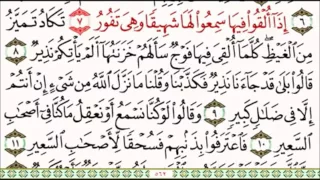 ٦ إِذَآ أُلْقُوا۟ فِيهَا سَمِعُوا۟ لَهَا شَهِيقًا وَهِىَ تَفُورُ ٧ تَكَادُ تَمَيَّزُ
مِنَ ٱلْغَيْظِ كُلَّمَآ أُلْقِىَ فِيهَا فَوْجٌ سَأَلَهُمْ خَزَنَتُهَآ أَلَمْ يَأْتِكُمْ نَذِيرٌ ٨
قَالُوا۟ بَلَىٰ قَدْ جَآءَنَا نَذِيرٌ فَكَذَّبْنَا وَقُلْنَا مَا نَزَّلَ ٱللَّهُ مِن شَىْءٍ إِنْ أَنتُمْ
إِلَّا فِى ضَلَٰلٍ كَبِيرٍ ٩ وَقَالُوا۟ لَوْ كُنَّا نَسْمَعُ أَوْ نَعْقِلُ مَا كُنَّا فِىٓ أَصْحَٰبِ
ٱلسَّعِيرِ ١٠ فَٱعْتَرَفُوا۟ بِذَنۢبِهِمْ فَسُحْقًا لِّأَصْحَٰبِ ٱلسَّعِيرِ ١١
٥٦٢